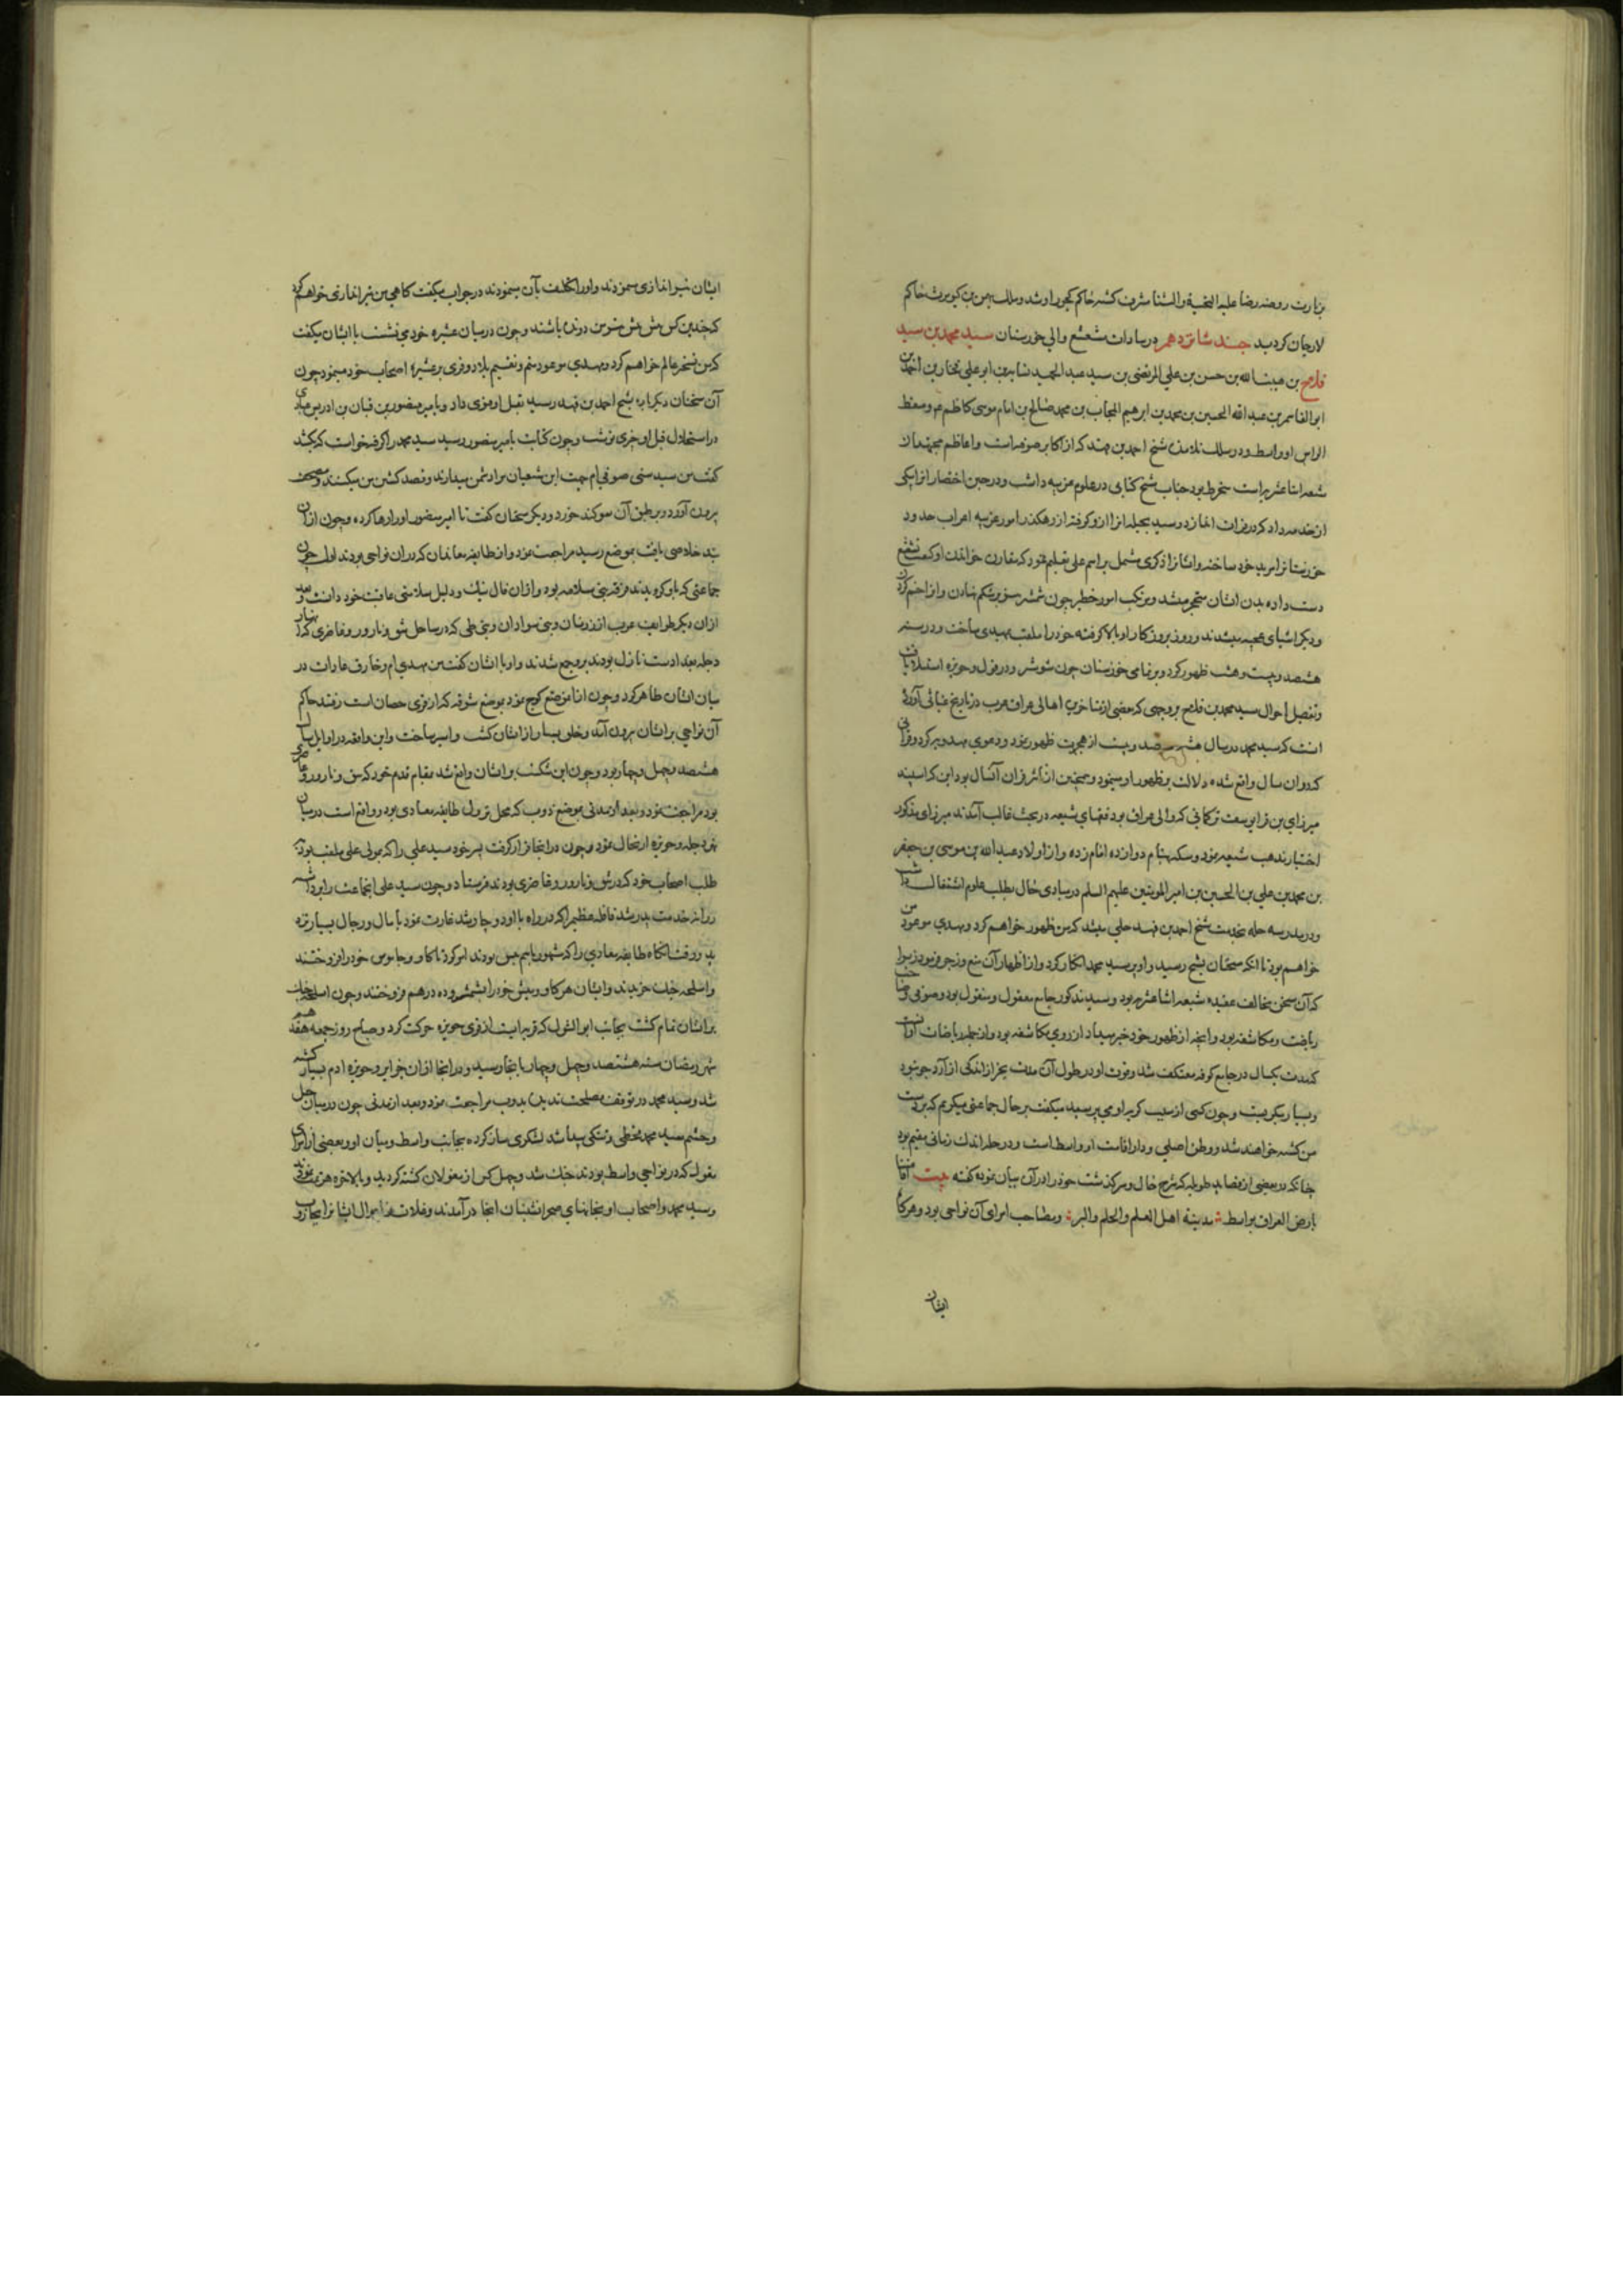 بزیارت روضه رضا علیه التحیة والثنا مشرف کشته حاکم کجور او شد و ملک بهمن بن کیومرث حاکم
لارجان کردید جند شانزدهم در سادات مشعشع والی خوزستان سید محمد بن سید
فلاح بن هیبة الله بن حسن بن علی المرتضی بن سید عبد الحمید نسابه بن ابو علی فخار بن احمد بن
ابو القاسم بن عبد الله الحسین بن محمد بن ابرهیم المجاب بن محمد صالح بن امام موسی کاظم م و مسقط
الراس او واسط و در سلک تلامذه شیخ احمد بن فهد که از اکابر صوفیه است و اعاظم مجتهدان
شیعه اثنا عشریه است منخرط بود جناب شیخ کتابی در علوم غریبه داشت و در حین احتضار انرا بیکی
از خدمه داد که در فرات اندازد و سید بحیله انرا ازو کرفته از رهکذر امور غریبه اعراب حدود
خوزستانرا مرید خود ساخته و ایشانرا ذکری مشتمل بر اسم علی تعلیم نمود که مقارن خواندن او کیفیت تشعشع
دست داده بدن ایشان متحجر میشد و مرتکب امور خطیر چون شمشیر بر شکم نهادن و انرا خم کردن
و دیکر اشیای عجیبه میشدند و روز بروز کار او بالا کرفته خود را ملقب بمهدی ساخت و در سنه
هشصد و بیست و هشت ظهور کرد و بر تمامی خوزستان چون شوشتر و دزفول و حویزه استیلا یافت
و تفصیل احوال سید محمد بن فلاح بروجهی که بعضی از متاخرین اهالی عراق عرب در تاریخ غیاثی آورده
انست که سید محمد در سال هشصد و بیست از هجرت ظهور نمود و دعوی مهدویه کرد و قرانی
که در ان سال واقع شده دلالت بر ظهور او مینمود و همچنین از اثر قران آنسال بود این که اسپند
میرزای بن قرا یوسف ترکمانی که والی عراق بود فقهای شیعه در بحث غالب آمدند میرزای مذکور
اختیار مذهب شیعه نمود و سکه بنام دوازده امام زده و از اولاد عبد الله بن موسی بن جعفر
بن محمد بن علی بن الحسین بن امیر المومنین علیهم السلم در مبادی حال بطلب علوم اشتغال داشت
و در مدرسه حله بخدمت شیخ احمد بن فهد حلی میشد که من ظهور خواهم کرد و مهدی موعود من
خواهم بود تا انکه سخنان بشیخ رسید و او بر سید محمد انکار کرد و از اظهار آن منع و زجر فرمود زیرا
که آن سخن مخالف عقیده شیعه اثنا عشریه بود و سید مذکور جامع معقول و منقول بود و صوفی و صاحب
ریاضت و مکاشفه بود و انچه از ظهور خود خبر میداد از روی مکاشفه بود و از جمله ریاضات او انست
که مدت یکسال در جامع کوفه معتکف شد و قوت او در طول آن مدت بجز از اندکی از آرد جو نبود
و بسیار میکریست و چون کسی از سبب کریه او می پرسید میکفت بر حال جماعتی میکریم که بر دست
من کشته خواهند شد و وطن اصلی و دار اقامت او واسط است و در حله اندک زمانی مقیم بود
چنانکه در بعضی از قصاید طویله که شرح حال و سرکذشت خود را در آن بیان نموده کفته بیت اقامتنا
بارض العراق بواسط مدینة اهل العلم والحلم والبر و مصاحب امرای آن نواحی بود و هرکاه
ایشان
ایشان تیر اندازی مینمودند و او را تکلیف بآن مینمودند در جواب میکفت کاهی من تیر اندازی خواهم کرد
که چندین کس پیش پیش من دونده باشند و چون در میان عشیره خود می نشست با ایشان میکفت
که من تسخیر عالم خواهم کرد و مهدی موعود منم و تقسیم بلاد و قری بر عشیره و اصحاب خود مینمود چون
آن سخنان دیکر باره بشیخ احمد بن فهد رسید بقتل او فتوی داد و بامیر منصور بن قبان بن ادریس عبادی
در استحلال قتل او چیزی نوشت و چون کتابت بامیر منصور رسید سید محمد را کرفته خواست که بکشد
کفت من سید سنی صوفی ام جهت این شیعیان مرا دشمن میدارند و قصد کشتن من میکنند و مصحف
بیرون آورد و بر طبق آن سوکند خورد و دیکر سخنان کفت تا امیر منصور او را رها کرده و چون از ان
بند خلاصی یافت بموضع رسید مراجعت نمود و از طایفه معاندان که در ان نواحی بودند اول جون
جماعتی که باو کرویدند فرقه بنی سلامه بود و از ان فال نیک و دلیل سلامتی عاقبت خود دانست و بعد
از ان دیکر طوایف عرب از رزنان و بنی سودان و بنی طی که در ساحل شق و نارور و غاضری که از بهار
دجله بغدادست نازل بودند برو جمع شدند و او با ایشان کفت من مهدی ام و خارق عادات در
میان ایشان ظاهر کرد و چون از ان موضع کوچ نمود بموضع شوقه که از قری حصان است رفتند حاکم
آن نواحی بر ایشان بیرون آمد و خلق بسیار از ایشان کشت و اسیر ساخت و این واقعه در اوایل سال
هشصد و چهل و چهار بود و چون این شکست بر ایشان واقع شد بمقام قدیم خود که شق و نارور و غاضری
بود مراجعت نمود و بعد از مدتی بموضع دوب که محل نزول طایفه معادی بود و واقع است در میان
نهر دجله و حویزه ارتحال نمود و چون در انجا قرار کرفت پسر خود سید علی را که بمولی علی ملقب بود به
طلب اصحاب خود که در شق و نارور و غاضری بودند فرستاد و چون سید علی انجماعت را برداشته
روانه خدمت پدر شد قافله عظیم را که در راه با او دوچار شد غارت نمود با مال و رجال بسیار نزد
پدر رفت انکاه طایفه معادی را که مشهور باسم نیس بودند امر کرد تا کاو و جاموس خود را فروختند
و اسلحه جنک خریدند و ایشان هر کاو و میش خود را بشش و ده درهم فروختند و چون اسلحه جنک
بر ایشان تمام کشت بجانب ابو الشول که قریه ایست از قری حویزه حرکت کرد و صباح روز جمعه هفدهم
شهر رمضان سنه هشتصد و چهل و چهار بانجا رسید و در انجا از ان جزایر و حویزه ادم بسیار کشته
شد و سید محمد در توقف مصلحت ندیده بدوب مراجعت نمود و بعد از مدتی چون در میان خیل
و حشم سید محمد قحطی و تنکی پیدا شد لشکری ساز کرده بجانب واسط و میان او و بعضی از امرای
مغول که در نواحی واسط بودند جنک شد و چهل کس از مغولان کشته کردید و بالاخره هزیمت نمودند
و سید محمد و اصحاب او بخانهای صحرانشینان انجا در آمدند و غلات و اموال ایشانرا بجاروب